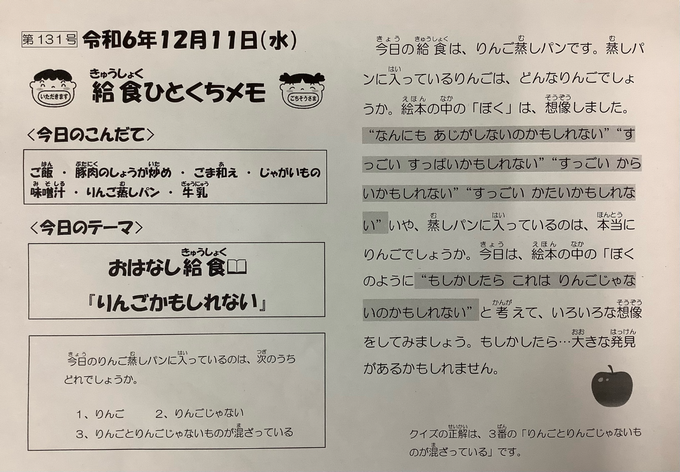 第131号 令和6年12月11日(水)
いただきます
きゅうしょく
給食ひとくちメモ
ごちそうさま
<今日のこんだて>
はん ぶたにく いた あ
ご飯・豚肉のしょうが炒め・ごま和え・じゃがいもの
みそしる む ぎゅうにゅう
味噌汁・りんご蒸しパン・牛乳
<今日のテーマ>
きゅうしょく
おはなし給食
『りんごかもしれない』
きょう む はい つぎ
今日のりんご蒸しパンに入っているのは、次のうち
どれでしょうか。
1、りんご 2、りんごじゃない
ま
3、りんごとりんごじゃないものが混ざっている
きょう きゅうしょく む む
今日の給食は、りんご蒸しパンです。蒸しパ
はい
ンに入っているりんごは、どんなりんごでしょ
えほん なか そうぞう
うか。絵本の中の「ぼく」は、想像しました。
“なんにも あじがしないのかもしれない”“す
っごい すっぱいかもしれない”“すっごい から
いかもしれない”“すっごい かたいかもしれな
む はい ほんとう
い”いや、蒸しパンに入っているのは、本当に
きょう えほん なか
りんごでしょうか。今日は、絵本の中の「ぼく」
のように“もしかしたら これは りんごじゃな
かんが そうぞう
いのかもしれない”と考えて、いろいろな想像
おお はっけん
をしてみましょう。もしかしたら…大きな発見
があるかもしれません。
せいかい ばん
クイズの正解は、3番の「りんごとりんごじゃないも
ま
のが混ざっている」です。